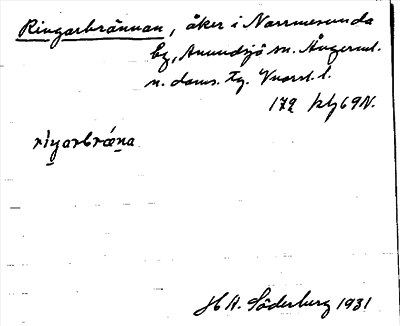 Ringarbrännan, åker i Norrmesunda
by, Anundsjö sn. Ångerml.
n. doms. tg. Vnorrl. l.
172 ktj 69N.
riŋarbrǽna
H A. Söderberg 1931